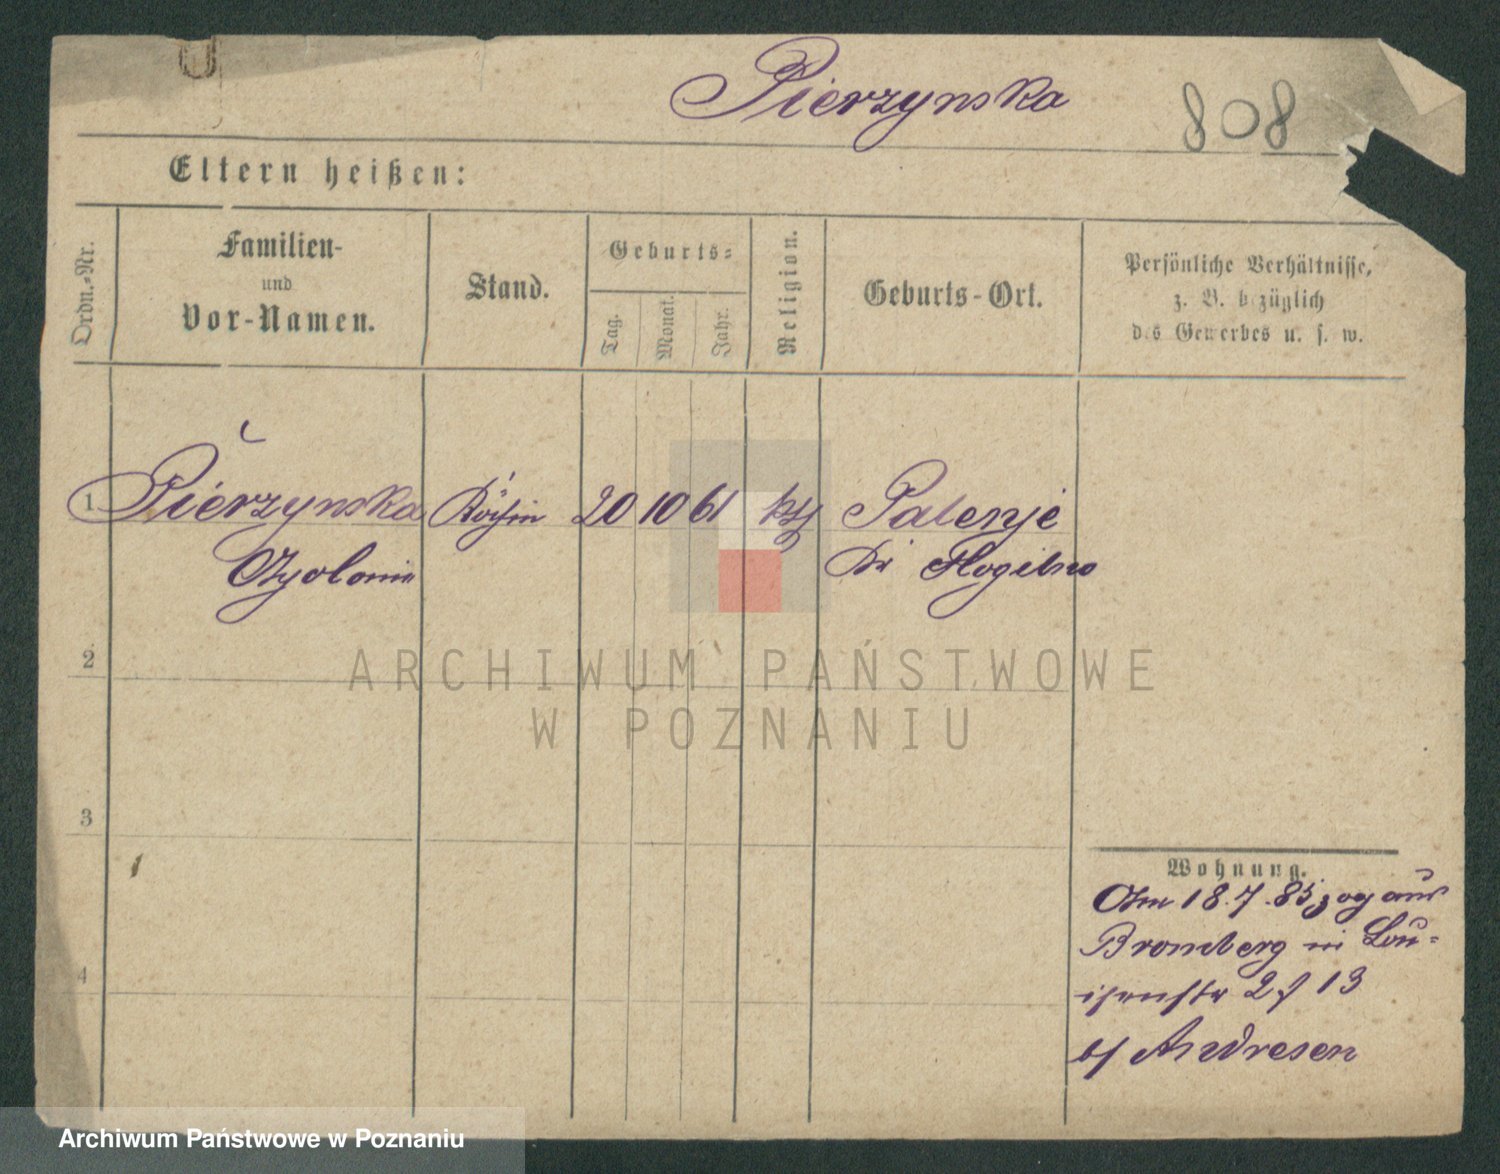 Pierzynska 808
Eltern heißen:
Ordn.-Nr.
Familien-
und
Vor-Namen.
Stand.
Geburts-
Tag.
Monat.
Jahr.
Religion.
Geburts-Ort.
Persönliche Verhältnisse,
z. B. bezüglich
des Gewerbes u. s. w.
1 Pierzynska Köchin 20 10 61 kth
Kr Mogilno
2
ARCHIWUM PAŃSTWOWE
W POZNANIU
3
Wohnung.
Am 18.7.85 zog aus
Bromberg in Lou-
isenstr 13
b/ Andresen
4
Archiwum Państwowe w Poznaniu